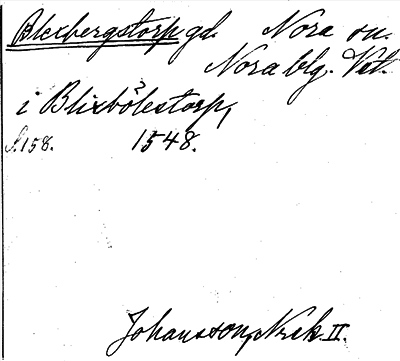 Blexbergstorp gd. Nora sn.
Nora blg. Vstl.
i Blixbölestorp,
S. 158. 1548.
Johansson, Nrsk II.